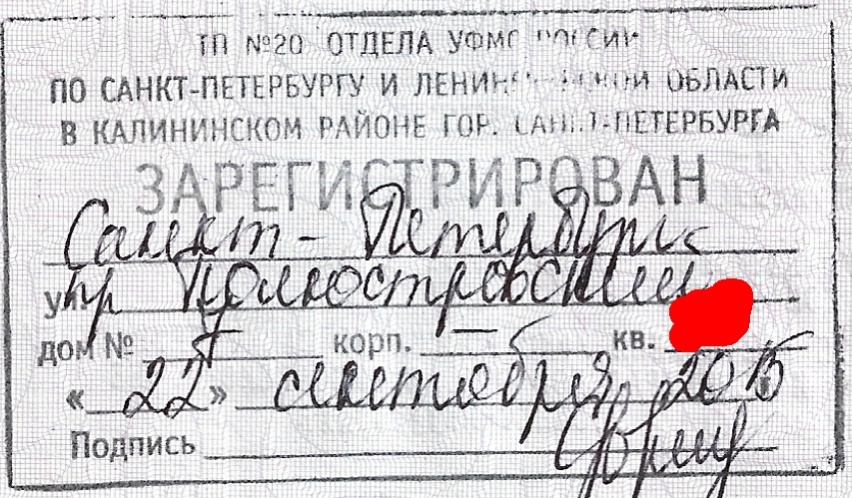 ТП №20 ОТДЕЛА УФМС РОССИИ
ПО САНКТ-ПЕТЕРБУРГУ И ЛЕНИНГРАДСКОЙ ОБЛАСТИ
В КАЛИНИНСКОМ РАЙОНЕ ГОР. САНКТ-ПЕТЕРБУРГА
ЗАРЕГИСТРИРОВАН
Санкт-Петербург
ул. пр Полюстровский
дом № корп. – кв.
«22» сентября 2015
Подпись